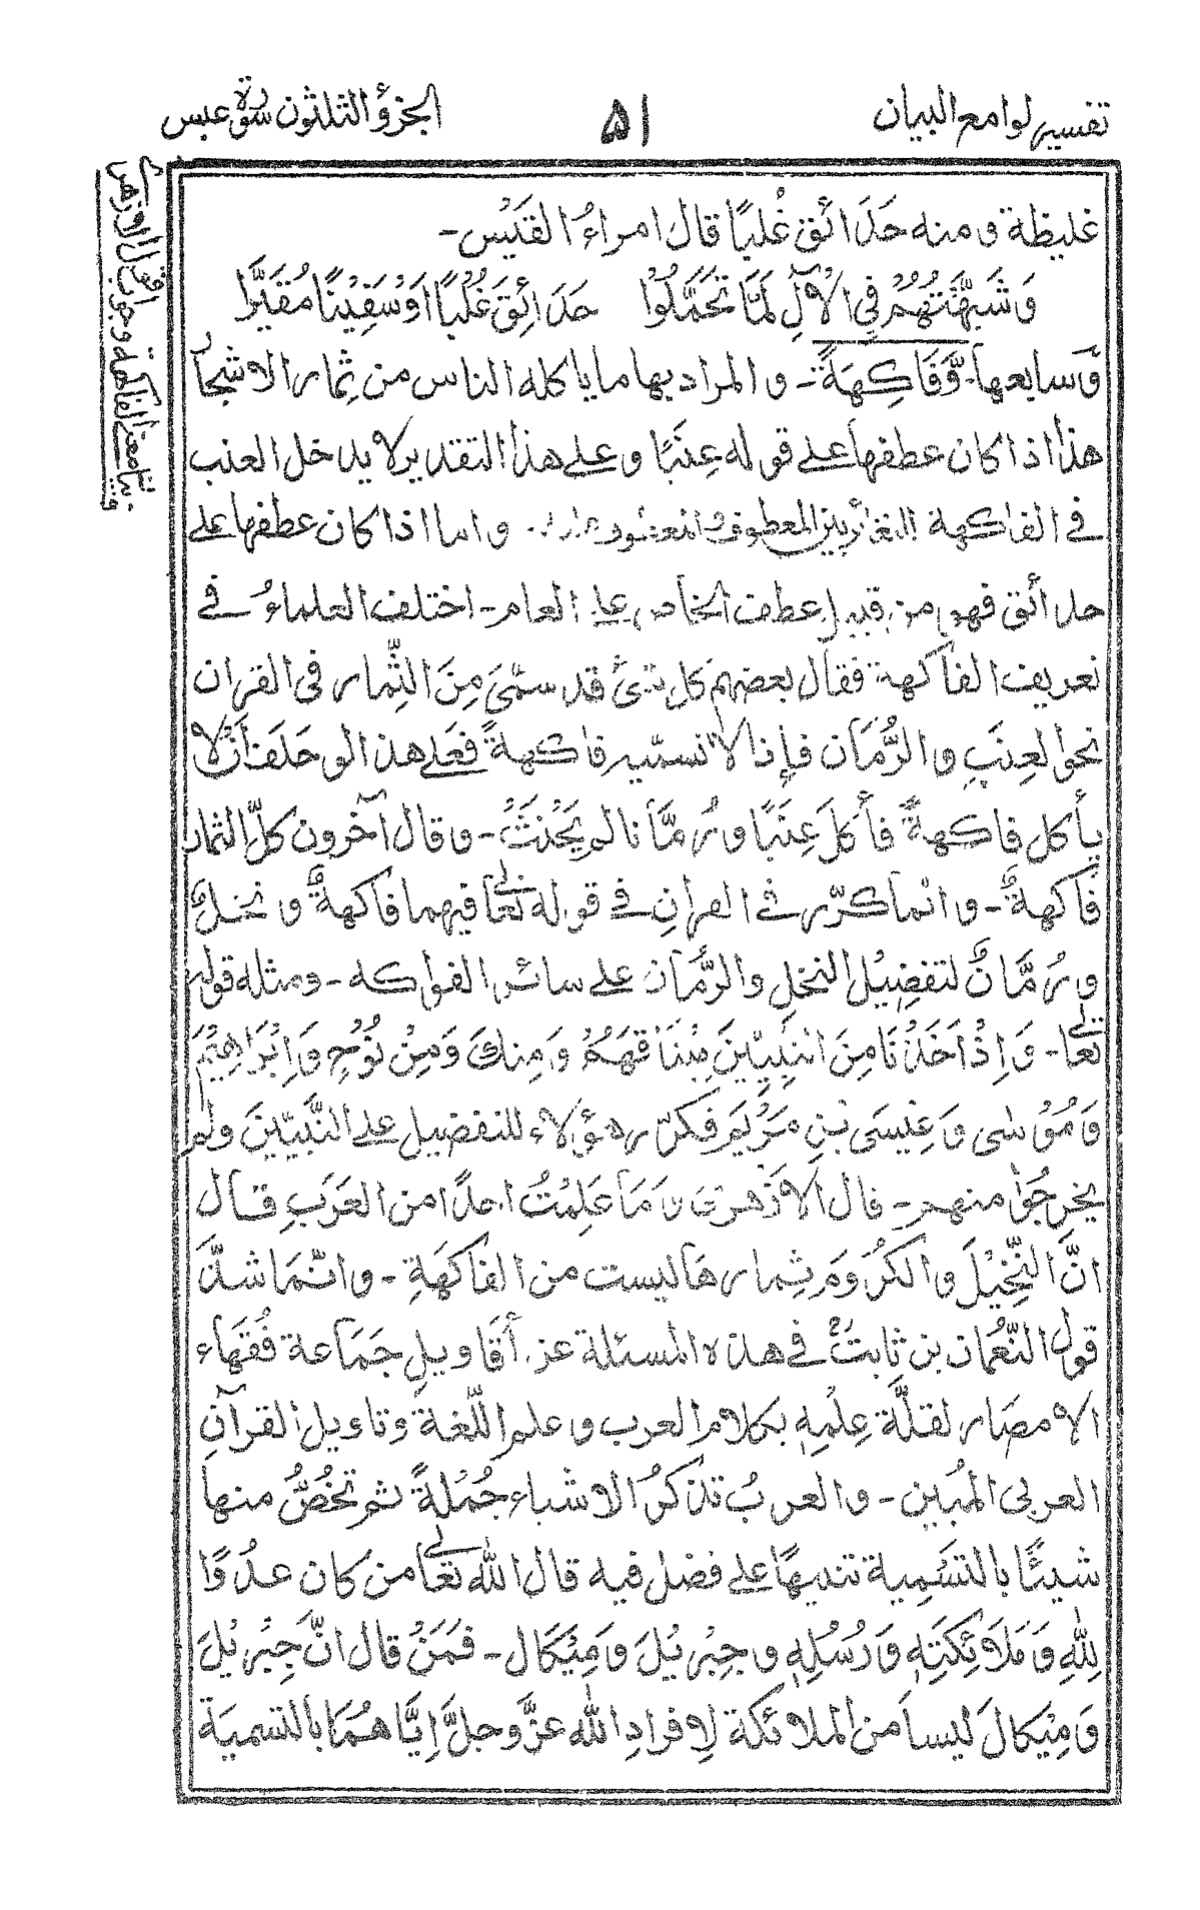 تفسير لوامع البيان
۵۱
الجزؤ الثلثون سورة عبس
غليظة ومنه حَدَائق غُلبًا قال امراءُ القَيْس-
وَشَبَّهْتُهُمْ فِي الْاٰلِ لَمَّا تَحَمَّلُوْا حَدَائِقَ غُلْبًا اَوْ سَفِيْنًا مُقَيَّرًا
وَسابعها- وَّفَاكِهَةً- والمراد بها ما ياكله الناس من ثِمار الاشجار
هذا اذا كان عطفها على قوله عِنَبًا وعلى هذا التقدير لا يدخل العنب
في الفاكهة للتغائر بين المعطوف و واما اذا كان عطفها على
حدائق فهو من قبيل عطف الخاص على العام- اختلف العلماءُ في
تعريف الفاكهة فقال بعضهم كل شئ قد سمّىَ مِنَ الثِّمار في القرآن
نحو العِنَبِ والرُّمَّان فإذا لا نسمّيه فاكهةً فعَلى هذا لو حَلَفَ أنْ لا
يأكل فاكهةً فأكَلَ عِنَبًا ورُمَّانا لم يَحْنَثْ- وقال آخرون كلّ الثمار
فاكهةٌ- وانما كرّر في القرآنِ في قوله تعالى فيهما فاكهةٌ ونخلٌ
ورُمَّانٌ لتفضِيْل النخلِ والرُّمَّان على سائر الفواكه- ومثله قوله
تعالى- وَاِذْ اَخَذْنَا مِنَ النَّبِيِّيْنَ مِيْثَاقَهُمْ وَمِنكَ وَمِنْ نُوْحٍ وَاِبْرَاهِيْمَ
وَمُوْسٰى وَعِيْسَى بْنِ مَرْيَمَ فكرّر هؤلاء للتفضيل على النَّبِيّيْنَ ولم
يخرِجوا منهم- قال الاَزْهرى وَمَا عَلِمْتُ احدًا من العَرَبِ قال
انَّ النَّخِيْلَ والكُرُوْمَ ثِمارها ليست من الفاكهَةِ- وانّما شذَّ
قول النُّعمان بن ثَابتٍ في هذه المسئلة عن أقَاويلِ جَمَاعة فُقَهاء
الامصَار لقلَّة عِلْمِهٖ بكلام العرب وعلم اللّغة وتاويل القرآنِ
العربى المُبين- والعربُ تذكرُ الاشياء جُمْلةً ثم تخُصُّ منها
شيئًا بالتسْمِية تنبيهًا على فضل فيه قال الله تعالى من كان عدُوًّا
لِلّٰهِ وَمَلَائِكَتِهٖ وَرُسُلِهٖ وجِبْرِيْلَ وَمِيْكَال- فمَنْ قال انَّ جِبْرِيْلَ
وَمِيْكالَ ليسا من الملائكة لِافرادِ الله عزَّوجلَّ إيَّاهُمَا بالتسْمِيَة